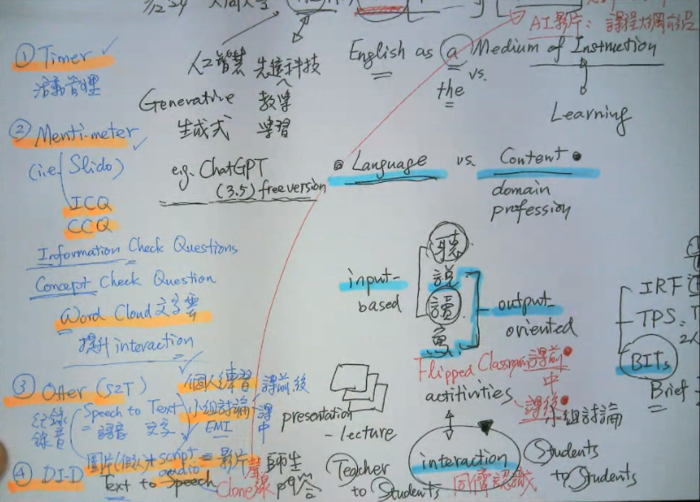 AI影片: 課程大綱
① Timer
活動管理
② Mentimeter
(i.e. Slido)
ICQ
CCQ
Information Check Questions
Concept Check Question
Word Cloud 文字雲
提升 interaction
③ Otter (S2T)
Speech to Text
= 語音 文字
④ DI-D
圖片(個人)+ script = 影片
audio
Text to Speech
個人練習 課前.後
小組討論 課中
EMI
Clone
師生
人工智慧 先進科技
Generative 教學
生成式 學習
e.g. ChatGPT
(3.5) free version
English as a Medium of Instruction
vs.
the
Learning
Language vs. Content
domain
profession
聽
說
讀
寫
input-
based
output-
oriented
Flipped Classroom 課前
中
actitivities
課後
小組討論
presentation
-lecture
Teacher
to Students
interaction
同儕認識
Students
to Students
IRF
TPS
BITs
Brief